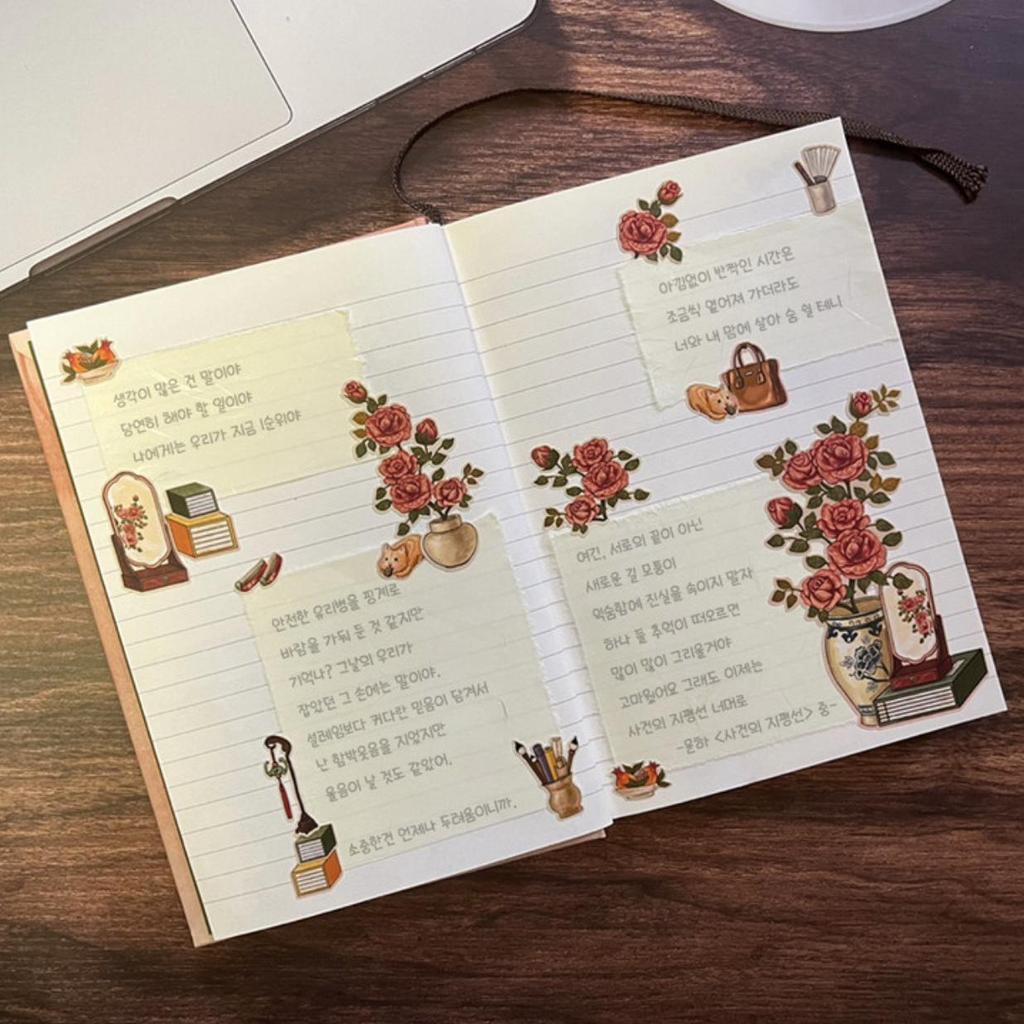 생각이 많은 건 말이야
당연히 해야 할 일이야
나에게는 우리가 지금 1순위야
안전한 유리병을 핑계로
바람을 가둬 둔 것 같지만
기억나? 그날의 우리가
잡았던 그 손에는 말이야.
설레임보다 커다란 믿음이 담겨서
난 함박웃음을 지었지만
울음이 날 것도 같았어.
소중한건 언제나 두려움이니까.
아낌없이 반짝인 시간은
조금씩 옅어져 가더라도
너와 내 맘에 살아 숨 쉴 테니
여긴, 서로의 끝이 아닌
새로운 길 모퉁이
익숙함에 진실을 속이지 말자
하나 둘 추억이 떠오르면
많이 많이 그리울거야
고마웠어요 그래도 이제는
사건의 지평선 너머로
-윤하 <사건의 지평선> 중-